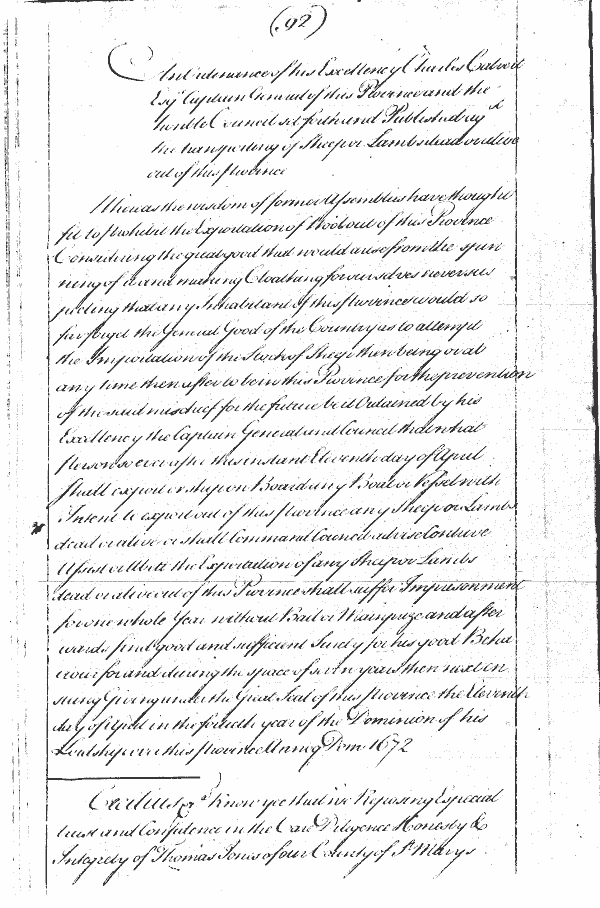 (92)
An Ordenance of his Excellency Charles Calvert
Esqr Captain Generall of this Province and the
honble Councill set forth and Published agt
the transporting of Sheep or Lambs dead or alive
out of this Province
Whereas the wisdom of former Assemblies have thought
fit to prohibit the Exportation of Wool out of this Province
Considering the great good that would arise from the spin
ning of it and making Cloathing for ourselves never sus
pecting that any Inhabitant of this Province would so
far forget the General Good of the Country as to attempt
the Importation of the Stock of Sheep then being or at
any time then after to be in this Province for the prevention
of the said mischief for the future be it Ordained by his
Excellency the Captain General and Council that what
person soever after this instant Eleventh day of April
shall export or ship on Board any Boat or Vessel with
Intent to export out of this Province any Sheep or Lambs
dead or alive or shall Command Councel advise Contrive
Assist or Abett the Exportation of any Sheep or Lambs
dead or alive out of this Province shall suffer Imprisonment
for one whole Year without Bail or Mainprize and after
wards find good and sufficient Surety for his good Beha
viour for and during the space of seven years then next en
suing Given under the Great Seal of this Province the Eleventh
day of April in the fourth year of the Dominion of his
Lordship over this Province Annoq Dom 1672
Cecilius &ca Know yee that we Reposing Especial
trust and Confidence in the Care Diligence Honesty &
Integrety of Thomas Jones of our County of St Marys